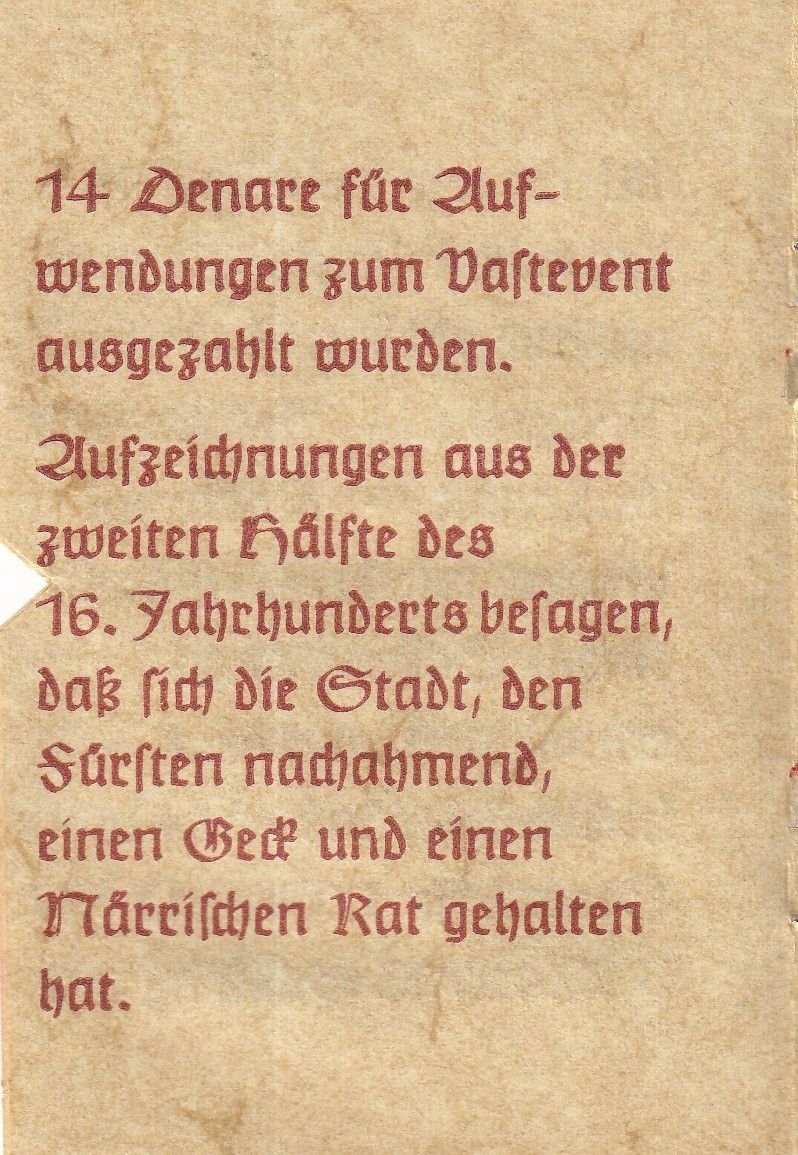 14 Denare für Auf-
wendungen zum Vaſtevent
ausgezahlt wurden.
Aufzeichnungen aus der
zweiten Hälfte des
16. Jahrhunderts beſagen,
daß ſich die Stadt, den
Fürſten nachahmend,
einen Geck und einen
Närriſchen Rat gehalten
hat.